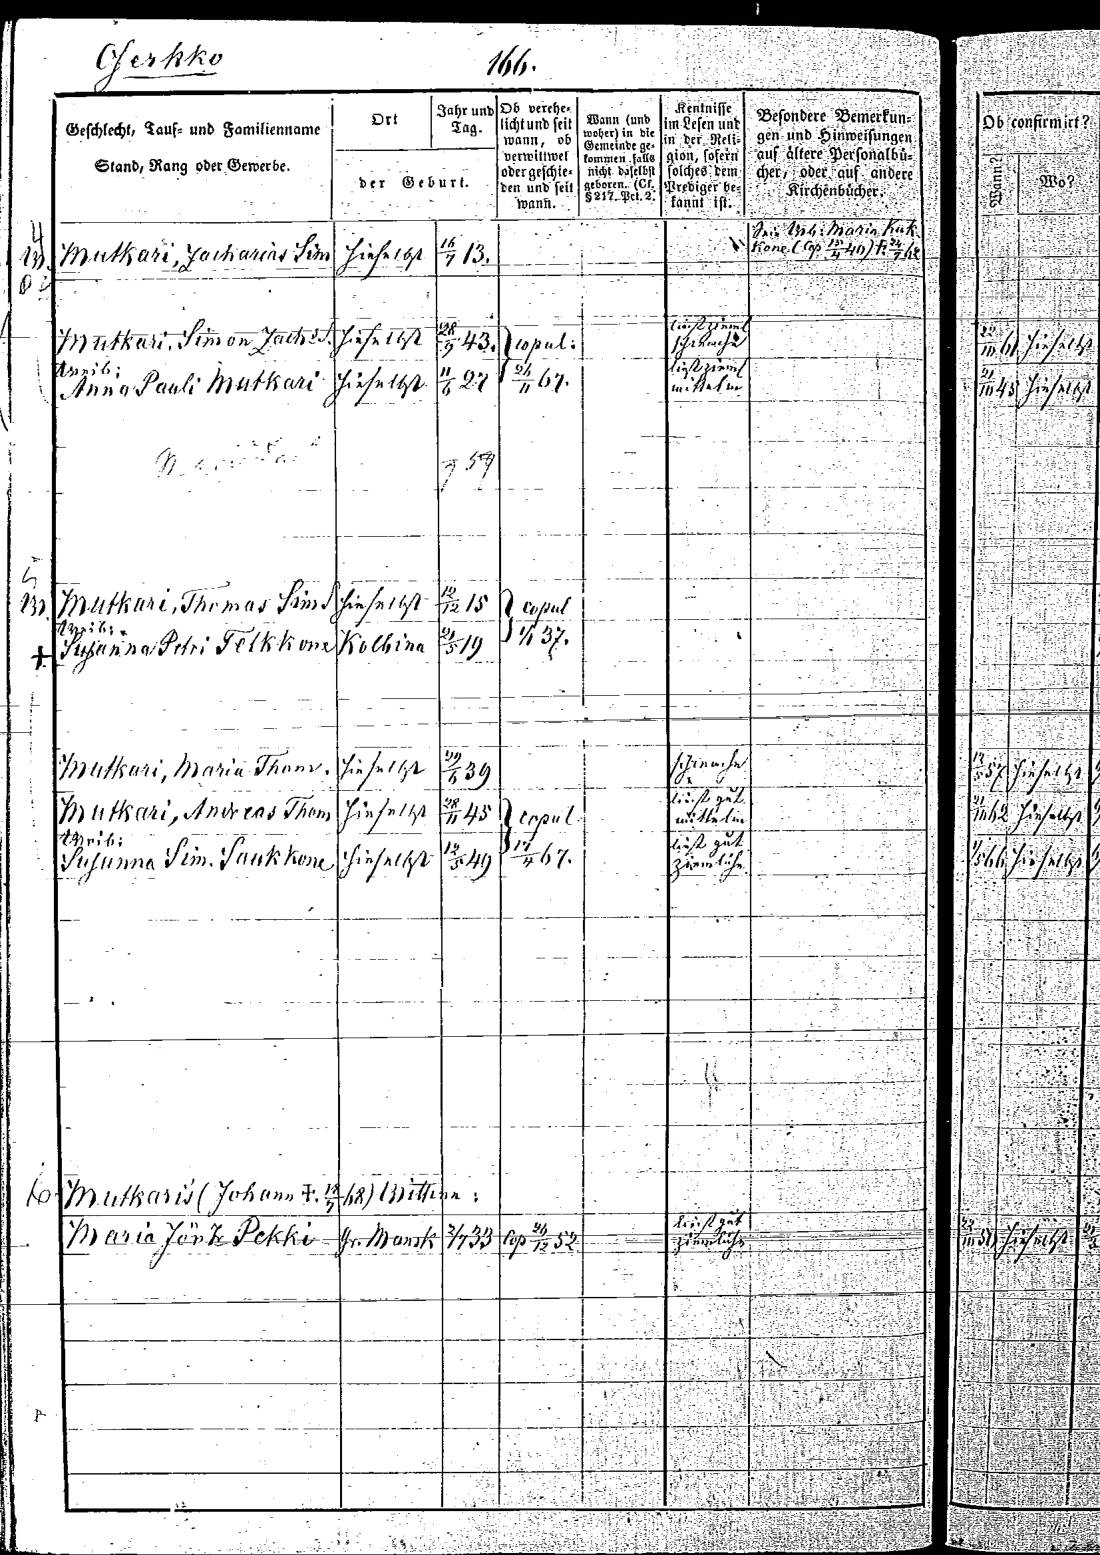 Oserkko
166.
Geschlecht, Tauf- und Familienname
Stand, Rang oder Gewerbe.
Ort
Jahr und
Tag.
der Geburt.
Ob verehe-
licht und seit
wann, ob
verwittwet
oder geschie-
den und seit
wann.
Wann (und
woher) in die
Gemeinde ge-
kommen, falls
nicht daselbst
geboren. (Cf.
§ 217. Pct. 2.
Kentnisse
im Lesen und
in der Reli-
gion, sofern
solches dem
Prediger be-
kannt ist.
Besondere Bemerkun-
gen und Hinweisungen
auf ältere Personalbü-
cher, oder auf andere
Kirchenbücher.
Ob confirmirt?
Wann?
Wo?
4
Mutkari, Zacharias Sim hieselbst 16/7 13.
Sein Wb: Maria Kuk-
kone (cop.
Mutkari, Simon Zach: S. hieselbst 28/9 43. copul: liest zieml schwache hieselbst
Weib:
Anna Pauli Mutkari hieselbst 11/6 27 26/11 67. liest zieml mittelm 21/10 45 hieselbst
59
5
Mutkari, Thomas Sim S hieselbst 12/12 15 copul
Weib:
+ Susanna Petri Telkkone Kolbina 21/5 19 37.
Mutkari, Maria Thom. hieselbst 29/6 39 schwache 57 hieselbst
Mutkari, Andreas Thom hieselbst 28/11 45 copul liest gut mittelm 62 hieselbst
Weib:
Susanna Sim. Saukkone hieselbst 12/5 49 17/4 67. liest gut ziemliche 66 hieselbst
6
Mutkaris (Johann †. 68) Wittwe:
Maria Jürk Pekki Gr. Mansk 2/7 33 cop 26/12 52 liest gut ziemliche hieselbst